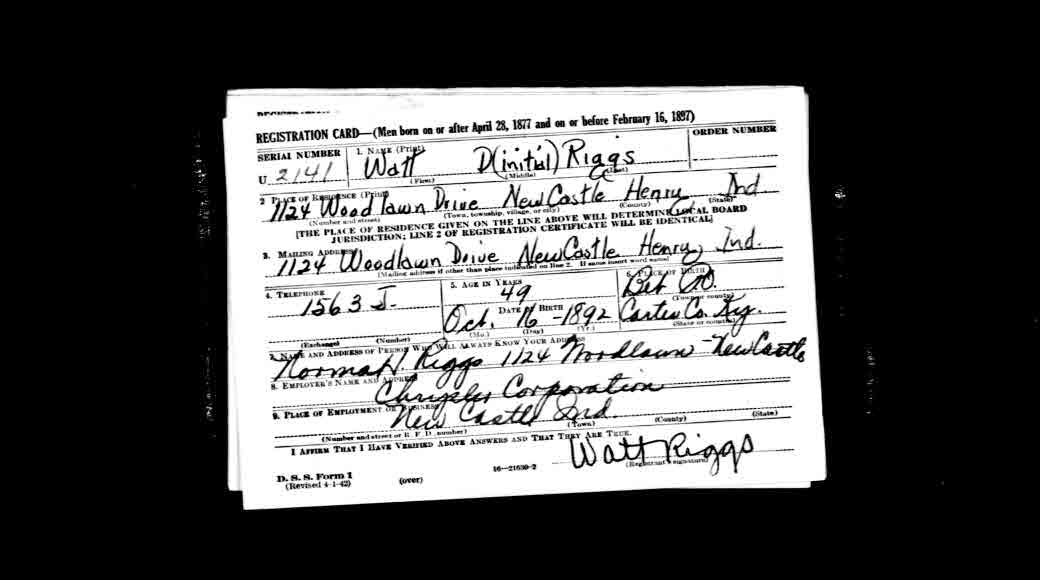 REGISTRATION CARD—(Men born on or after April 28, 1877 and on or before February 16, 1897)
SERIAL NUMBER
1. NAME (Print)
ORDER NUMBER
U 2141
Watt D(initial) Riggs
(First) (Middle) (Last)
2. PLACE OF RESIDENCE (Print)
1124 Woodlawn Drive New Castle Henry Ind
(Number and street) (Town, township, village, or city) (County) (State)
[THE PLACE OF RESIDENCE GIVEN ON THE LINE ABOVE WILL DETERMINE LOCAL BOARD
JURISDICTION; LINE 2 OF REGISTRATION CERTIFICATE WILL BE IDENTICAL]
3. MAILING ADDRESS
1124 Woodlawn Drive New Castle Henry Ind.
[Mailing address if other than place indicated on line 2. If same insert word same]
4. TELEPHONE
5. AGE IN YEARS
6. PLACE OF BIRTH
1563 J.
49
(Town or county)
DATE OF BIRTH
Oct. 16 - 1892
Carter Co. Ky.
(Mo.) (Day) (Yr.)
(State or country)
(Exchange) (Number)
7. NAME AND ADDRESS OF PERSON WHO WILL ALWAYS KNOW YOUR ADDRESS
Riggs 1124 Woodlawn - New Castle
8. EMPLOYER'S NAME AND ADDRESS
Chrysler Corporation
9. PLACE OF EMPLOYMENT OR BUSINESS
New Castle Ind.
(Number and street or R. F. D. number) (Town) (County) (State)
I AFFIRM THAT I HAVE VERIFIED ABOVE ANSWERS AND THAT THEY ARE TRUE.
Watt Riggs
(Registrant's signature)
D. S. S. Form 1
(Revised 4-1-42)
(over)
16—21630-2